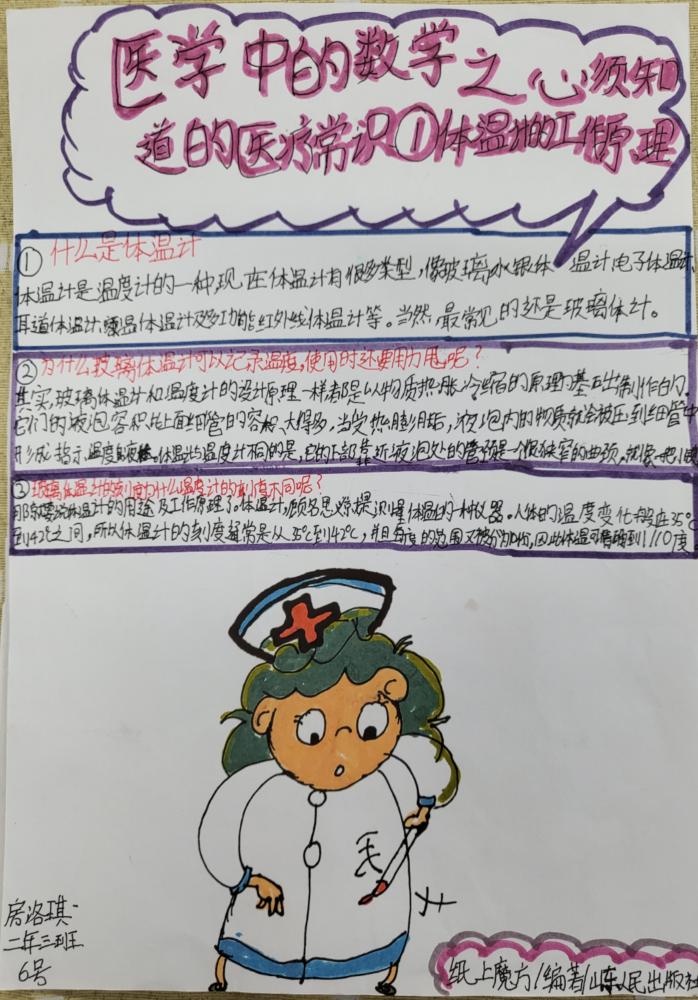 医学中的数学之心须知
道的医疗常识①体温计的工作原理
① 什么是体温计
体温计是温度计的一种现在体温计有很多类型,像玻璃水银体温计电子体温计
耳道体温计、额温体温计及多功能红外线体温计等。当然,最常见的还是玻璃体计。
②为什么玻璃体温计可以记录温度,使用时还要用力甩呢?
其实,玻璃体温计和温度计的设计原理一样都是以物质热胀冷缩的原理为基础制作的
它们的液泡容积比上面细管的容积大得多,当受热膨胀后,液泡内的物质就会被压到细管中
形成指示温度的液柱。体温计与温度计不同的是,它的下部靠近液泡处的管颈是一个很狭窄的曲颈,就像一把
③玻璃体温计的刻度为什么温度计的刻度不同呢?
那就要说体温计的用途及工作原理了。体温计,顾名思义测量体温的一种仪器。人体的温度变化一般在35°
到42℃之间,所以体温计的刻度通常是从35℃到42℃,并且每度的范围又被分为10份,因此体温可精确到1/10度
医
房洛琪
二年三班
6号
纸上魔方/编著/山东人民出版社